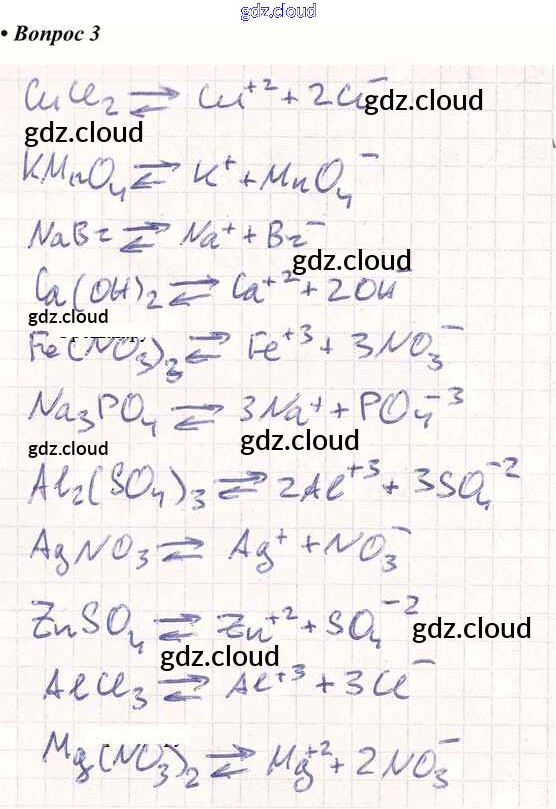 gdz.cloud
• Вопрос 3
CuCl₂ ⇄ Cu⁺² + 2Cl⁻ gdz.cloud
gdz.cloud
KMnO₄ ⇄ K⁺ + MnO₄⁻
NaBr ⇄ Na⁺ + Br⁻
gdz.cloud
Ca(OH)₂ ⇄ Ca⁺² + 2OH⁻
gdz.cloud
Fe(NO₃)₃ ⇄ Fe⁺³ + 3NO₃⁻
Na₃PO₄ ⇄ 3Na⁺ + PO₄⁻³
gdz.cloud
gdz.cloud
Al₂(SO₄)₃ ⇄ 2Al⁺³ + 3SO₄⁻²
AgNO₃ ⇄ Ag⁺ + NO₃⁻
ZnSO₄ ⇄ Zn⁺² + SO₄⁻² gdz.cloud
gdz.cloud
AlCl₃ ⇄ Al⁺³ + 3Cl⁻
Mg(NO₃)₂ ⇄ Mg⁺² + 2NO₃⁻